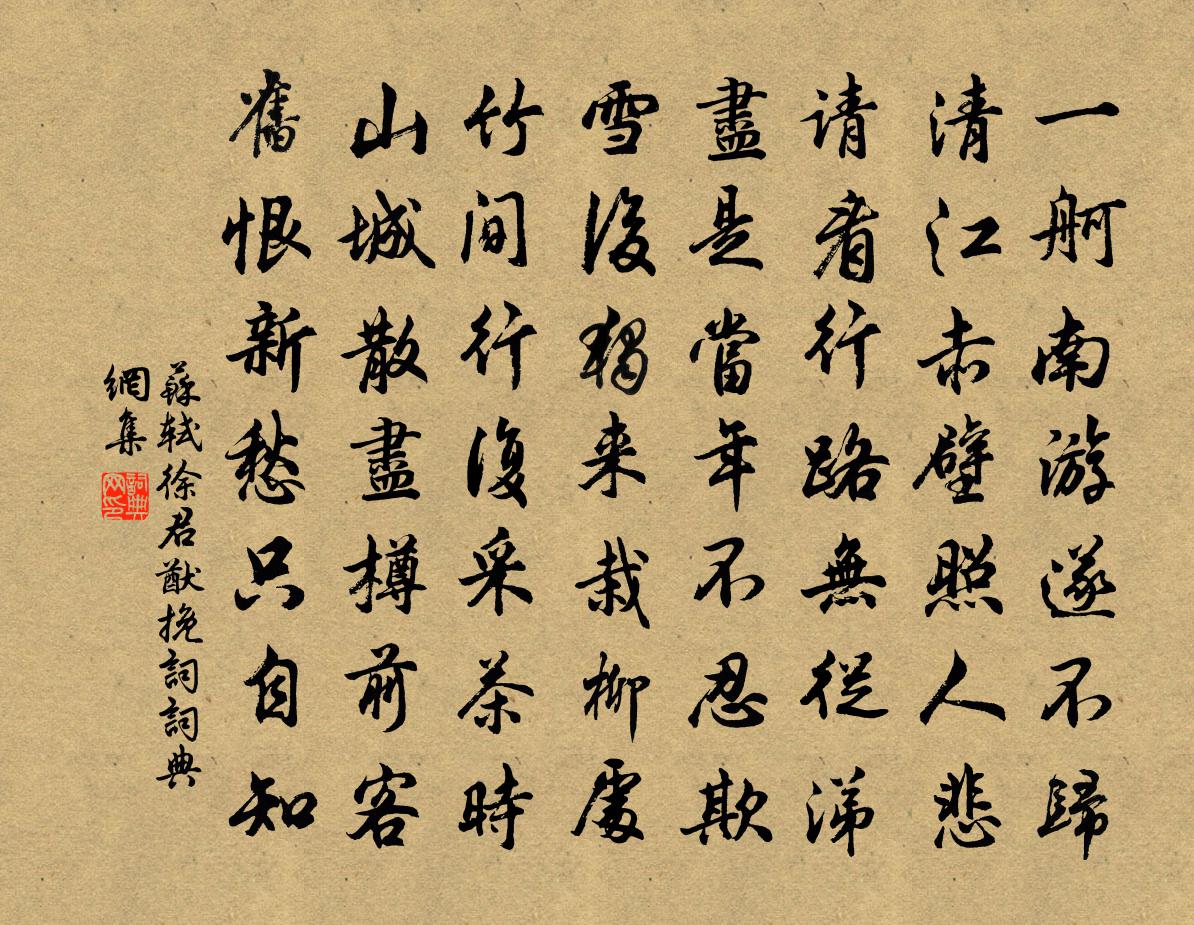 一舸南游遂不歸
清江赤壁照人悲
请看行路無從涕
盡是當年不忍欺
雪後獨来栽柳處
竹间行復采茶時
山城散盡樽前客
舊恨新愁只自知
蘇軾徐君猷挽詞詞典
網集
詞典
网印